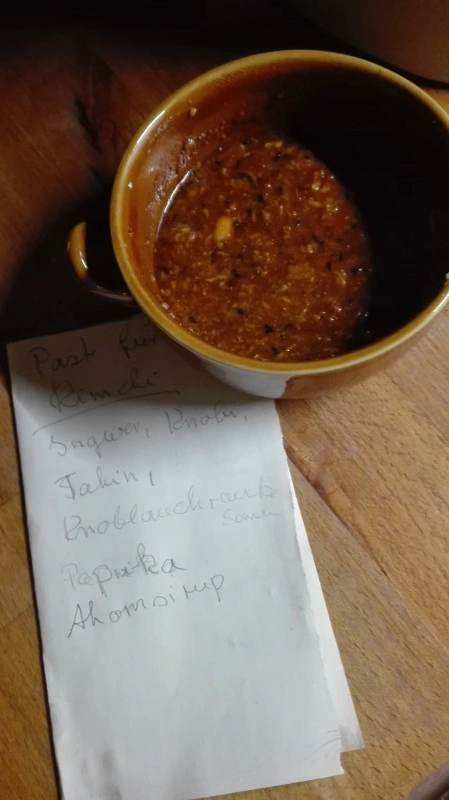 Paste für
Kimchi
Ingwer, Knobi,
Tahin,
Knoblauchrauke
Samen
Paprika
Ahornsirup